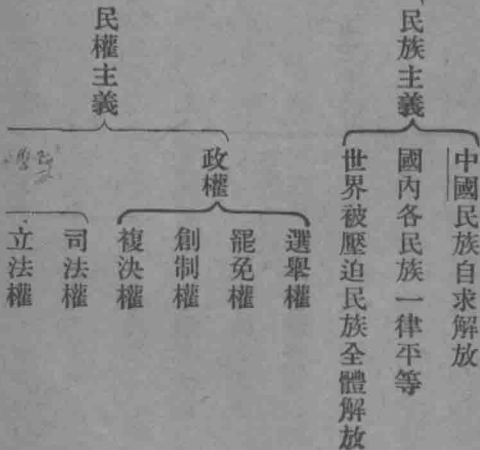 民族主義
中國民族自求解放
國內各民族一律平等
世界被壓迫民族全體解放
民權主義
政權
選舉權
罷免權
創制權
複決權
司法權
立法權